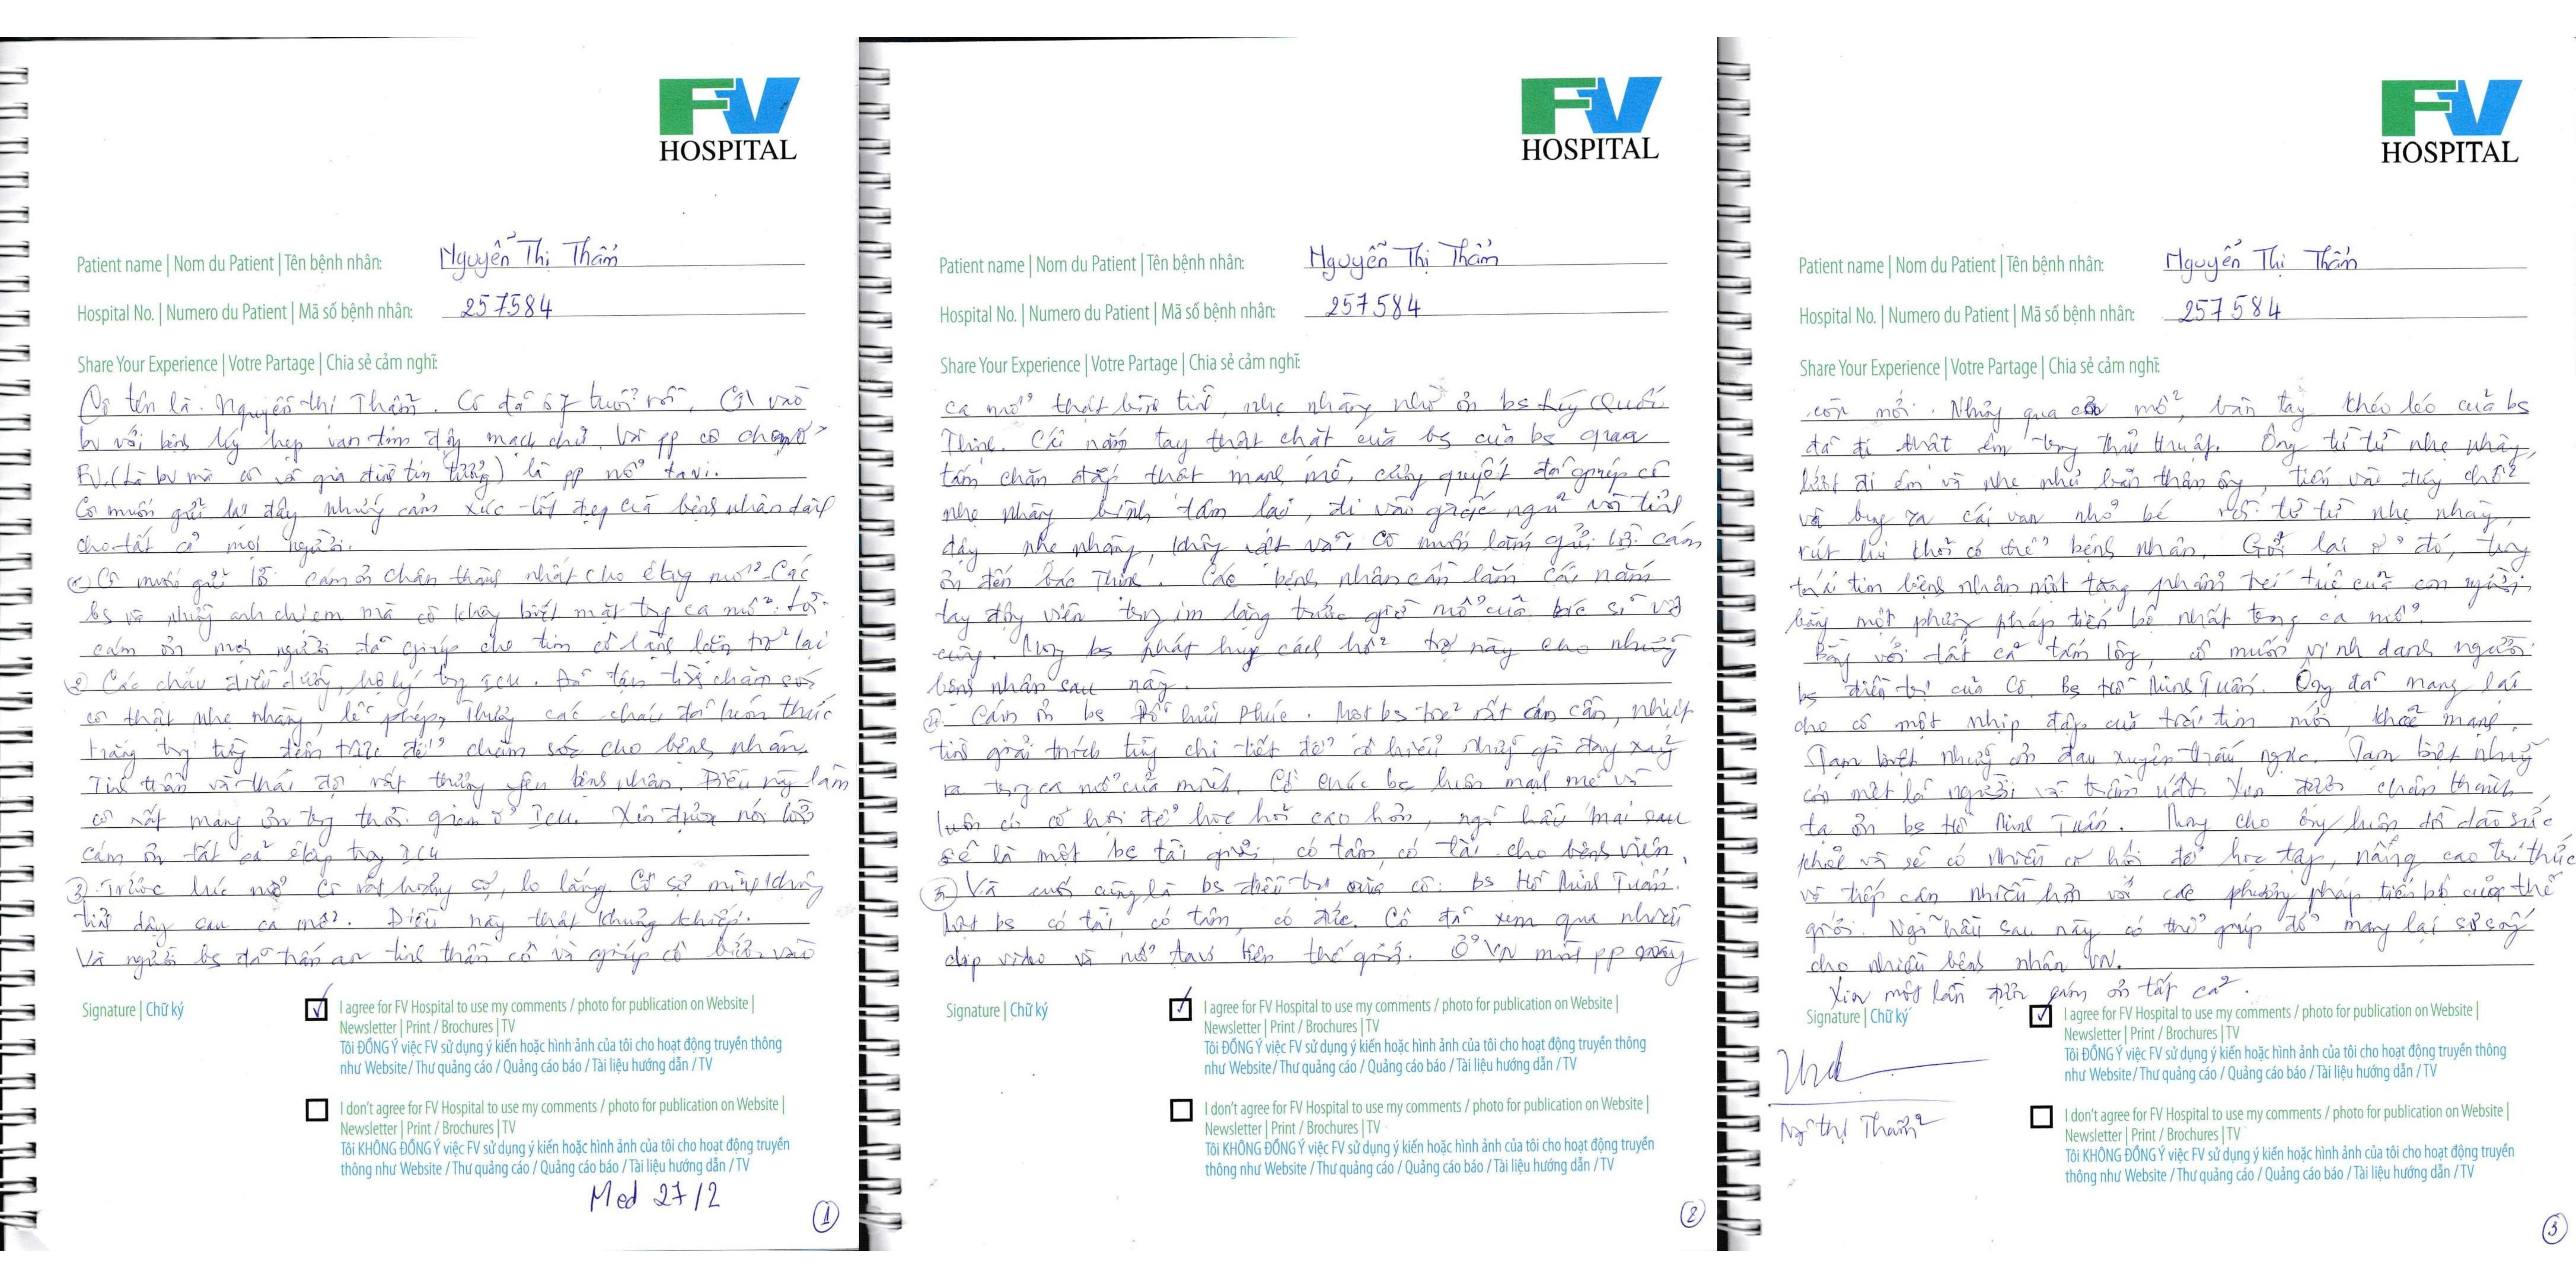 FV
HOSPITAL
Patient name | Nom du Patient | Tên bệnh nhân: Nguyễn Thị Thắm
Hospital No. | Numero du Patient | Mã số bệnh nhân: 257584
Share Your Experience | Votre Partage | Chia sẻ cảm nghĩ:
Cô tên là Nguyễn thị Thắm. Cô đã 67 tuổi rồi, Cô vào
bv với bệnh lý hẹp van tim động mạch chủ, và pp cô chọn ở
FV (Là bv mà cô và gia đình tin tưởng) là pp mổ tavi.
Cô muốn gửi lại đây những cảm xúc tốt đẹp của bệnh nhân dành
cho tất cả mọi người.
① Cô muốn gửi lời cám ơn chân thành nhất cho êkip mổ. Các
bs và những anh chị em mà cô không biết mặt trong ca mổ.
cám ơn mọi người đã giúp cho tim cô lành lặn trở lại
② Các cháu điều dưỡng, hộ lý trong ICU. Đã tận tình chăm sóc
cô thật nhẹ nhàng, lễ phép, Thương các cháu đã luôn thức
trắng trong từng đêm trực để chăm sóc cho bệnh nhân
Tinh thần và thái độ rất thương yêu bệnh nhân. Điều này làm
cô rất mang ơn trong thời gian ở ICU. Xin được nói lời
cám ơn tất cả êkip trong ICU
③ Trước lúc mổ cô rất hoảng sợ, lo lắng. Cô sợ mình không
tỉnh dậy sau ca mổ. Điều này thật khủng khiếp.
Và người bs đã trấn an tinh thần cô và giúp cô bước vào
Signature | Chữ ký
I agree for FV Hospital to use my comments / photo for publication on Website |
Newsletter | Print / Brochures | TV
Tôi ĐỒNG Ý việc FV sử dụng ý kiến hoặc hình ảnh của tôi cho hoạt động truyền thông
như Website / Thư quảng cáo / Quảng cáo báo / Tài liệu hướng dẫn / TV
I don't agree for FV Hospital to use my comments / photo for publication on Website |
Newsletter | Print / Brochures | TV
Tôi KHÔNG ĐỒNG Ý việc FV sử dụng ý kiến hoặc hình ảnh của tôi cho hoạt động truyền
thông như Website / Thư quảng cáo / Quảng cáo báo / Tài liệu hướng dẫn / TV
Med 27/2
①
FV
HOSPITAL
Patient name | Nom du Patient | Tên bệnh nhân: Nguyễn Thị Thắm
Hospital No. | Numero du Patient | Mã số bệnh nhân: 257584
Share Your Experience | Votre Partage | Chia sẻ cảm nghĩ:
ca mổ thật bình tĩnh, nhẹ nhàng nhờ ơn bs Lý Quốc
Thịnh. Cái nắm tay thật chặt của bs của bs qua
tấm chăn đắp thật mạnh mẽ, cương quyết đã giúp cô
nhẹ nhàng bình tâm lại, đi vào giấc ngủ rồi tỉnh
dậy nhẹ nhàng, không vất vả, cô muốn lắm gửi lời cám
ơn đến bác Thịnh. Các bệnh nhân cần lắm cái nắm
tay động viên trong im lặng trước giờ mổ của bác sĩ vô
cùng. Mong bs phát huy cách hỗ trợ này cho những
bệnh nhân sau này.
④ Cám ơn bs Đỗ Hữu Phúc. Một bs trẻ rất cần, nhiệt
tình giải thích từng chi tiết để cô hiểu những gì đang xảy
ra trong ca mổ của mình. Cô chúc bs luôn mạnh mẽ và
luôn có cơ hội để học hỏi cao hơn, ngõ hầu mai sau
sẽ là một bs tài giỏi, có tâm, có tài cho bệnh viện.
⑤ Và cuối cùng là bs điều trị của cô: Bs Hồ Minh Tuấn.
Một bs có tài, có tâm, có đức. Cô đã xem qua nhiều
clip video về mổ tavi trên thế giới. Ở VN mình pp này
Signature | Chữ ký
I agree for FV Hospital to use my comments / photo for publication on Website |
Newsletter | Print / Brochures | TV
Tôi ĐỒNG Ý việc FV sử dụng ý kiến hoặc hình ảnh của tôi cho hoạt động truyền thông
như Website / Thư quảng cáo / Quảng cáo báo / Tài liệu hướng dẫn / TV
I don't agree for FV Hospital to use my comments / photo for publication on Website |
Newsletter | Print / Brochures | TV
Tôi KHÔNG ĐỒNG Ý việc FV sử dụng ý kiến hoặc hình ảnh của tôi cho hoạt động truyền
thông như Website / Thư quảng cáo / Quảng cáo báo / Tài liệu hướng dẫn / TV
②
FV
HOSPITAL
Patient name | Nom du Patient | Tên bệnh nhân: Nguyễn Thị Thắm
Hospital No. | Numero du Patient | Mã số bệnh nhân: 257584
Share Your Experience | Votre Partage | Chia sẻ cảm nghĩ:
còn mới. Nhưng qua ca mổ, bàn tay khéo léo của bs
đã đi thật êm trong thủ thuật. Ông từ từ nhẹ nhàng,
lướt đi êm và nhẹ như bản thân ông, tiến vào đúng chỗ
và bung ra cái van nhỏ bé rồi từ từ nhẹ nhàng,
rút lui khỏi cơ thể bệnh nhân. Gởi lại ở đó, trong
trái tim bệnh nhân một tặng phẩm trí tuệ của con người
bằng một phương pháp tiến bộ nhất trong ca mổ.
Bằng với tất cả tấm lòng, cô muốn vinh danh người
bs điều trị của Cô. Bs Hồ Minh Tuấn. Ông đã mang lại
cho cô một nhịp đập của trái tim mới, khoẻ mạnh.
Tạm biệt những cơn đau xuyên thấu ngực. Tạm biệt những
cơn mệt lả người và trầm uất. Xin được chân thành
tạ ơn bs Hồ Minh Tuấn. Mong cho ông luôn dồi dào sức
khoẻ và sẽ có nhiều cơ hội để học tập, nâng cao trí thức
và tiếp cận nhiều hơn với các phương pháp tiến bộ của thế
giới. Ngõ hầu sau này có thể giúp đỡ mang lại sự sống
cho nhiều bệnh nhân VN.
Xin một lần được cám ơn tất cả.
Signature | Chữ ký
Ng thị Thắm
I agree for FV Hospital to use my comments / photo for publication on Website |
Newsletter | Print / Brochures | TV
Tôi ĐỒNG Ý việc FV sử dụng ý kiến hoặc hình ảnh của tôi cho hoạt động truyền thông
như Website / Thư quảng cáo / Quảng cáo báo / Tài liệu hướng dẫn / TV
I don't agree for FV Hospital to use my comments / photo for publication on Website |
Newsletter | Print / Brochures | TV
Tôi KHÔNG ĐỒNG Ý việc FV sử dụng ý kiến hoặc hình ảnh của tôi cho hoạt động truyền
thông như Website / Thư quảng cáo / Quảng cáo báo / Tài liệu hướng dẫn / TV
③